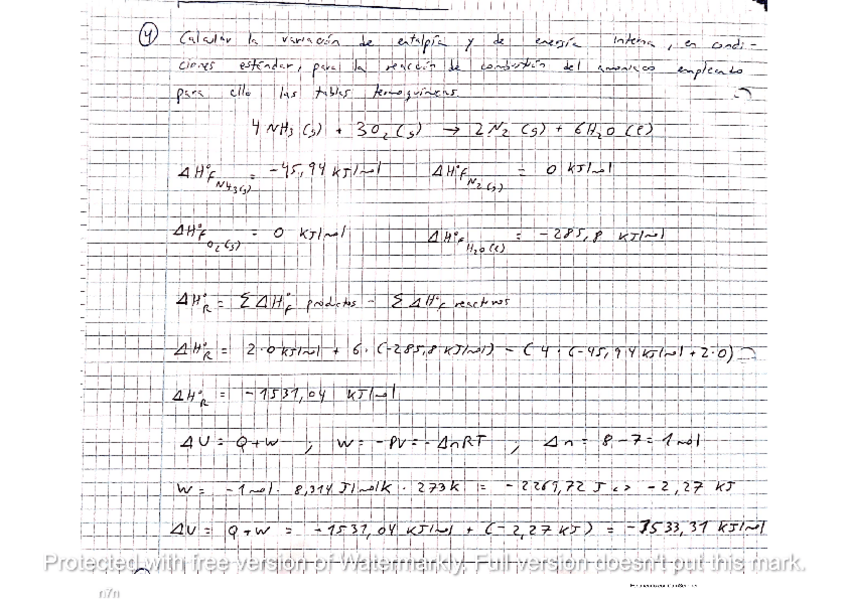 4) Calcular la variación de entalpía y de energía interna, en condi-
ciones estándar, para la reacción de combustión del amoniaco empleando
para ello las tablas termoquímicas.
4 NH3 (g) + 3O2 (g) → 2N2 (g) + 6H2O (l)
ΔH°F NH3(g) = -45,94 KJ/mol ΔH°F N2(g) = 0 KJ/mol
ΔH°F O2(g) = 0 KJ/mol ΔH°F H2O(l) = -285,8 KJ/mol
ΔH°R = Σ ΔH°F productos - Σ ΔH°F reactivos
ΔH°R = 2·0 KJ/mol + 6·(-285,8 KJ/mol) - (4·(-45,94 KJ/mol + 2·0)
ΔH°R = -1531,04 KJ/mol
ΔU = Q+W ; W = -PV = -ΔnRT ; Δn = 8-7 = 1 mol
W = -1mol · 8,314 J/molK · 273K = -2269,72 J <> -2,27 KJ
ΔU = Q+W = -1531,04 KJ/mol + (-2,27 KJ) = -1533,31 KJ/mol
Protected with free version of Watermarkly. Full version doesn't put this mark.